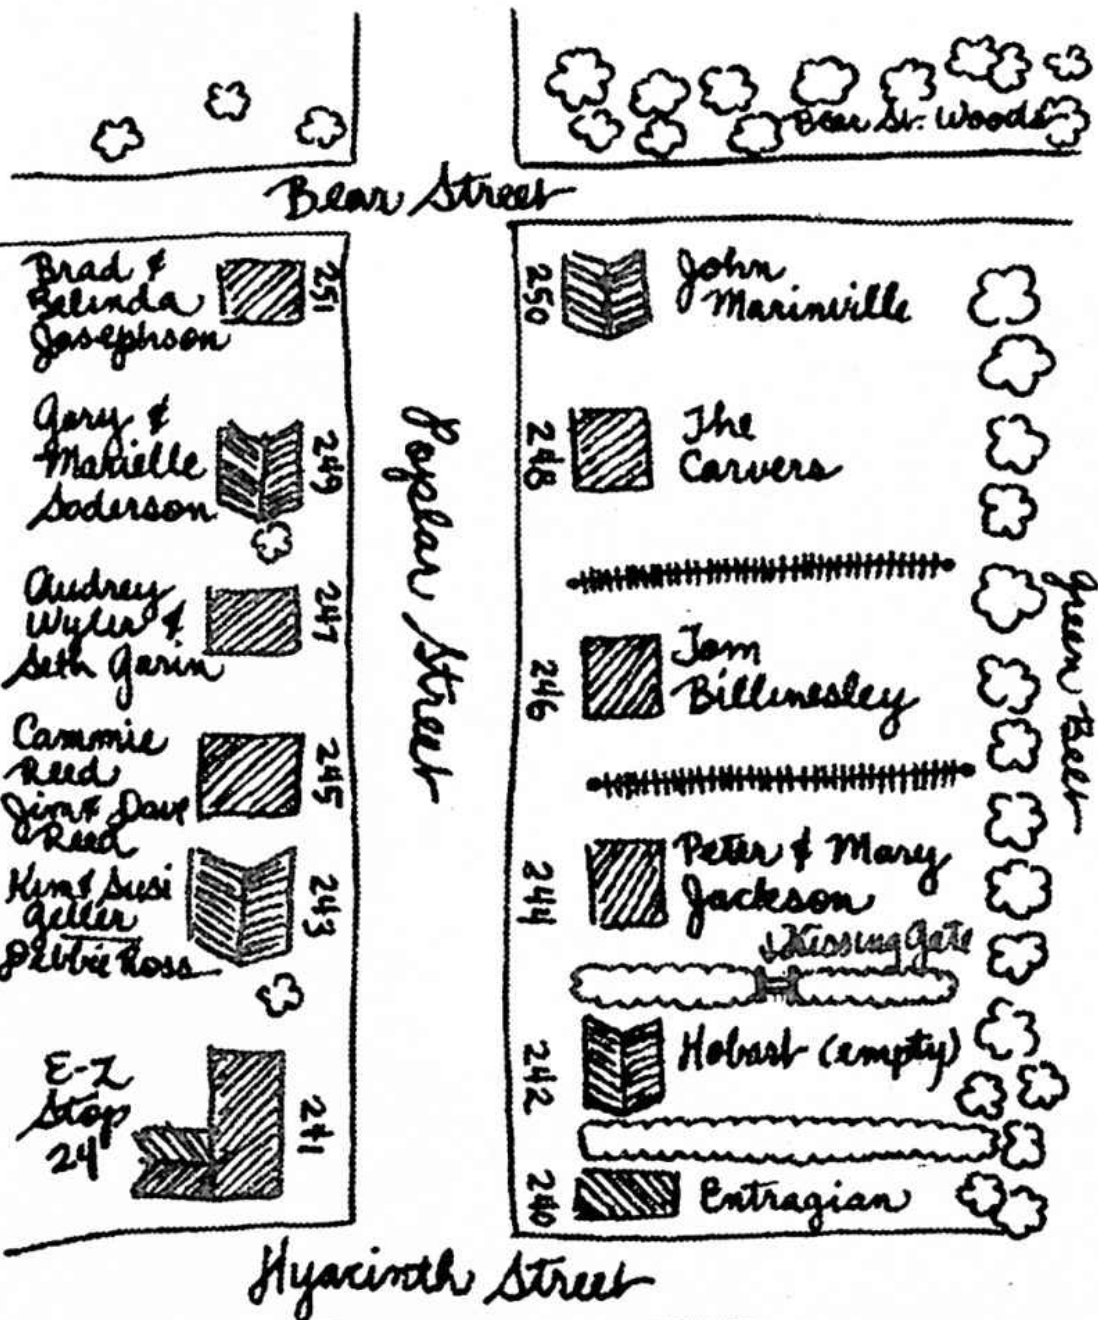 Bear St. Woods
Bear Street
Brad &
Belinda
Josephson
251
Gary &
Marielle
Soderson
249
Audrey
Wyler &
Seth Garin
247
Cammie
Reed
Jim & Dave
Reed
245
Kim & Susi
Geller
Debbie Ross
243
E-Z
Stop
24
241
Poplar Street
250
John
Marinville
248
The
Carvers
246
Tom
Billingsley
244
Peter & Mary
Jackson
↓Kissing Gate
242
Hobart (empty)
240
Entragian
Green Belt
Hyacinth Street